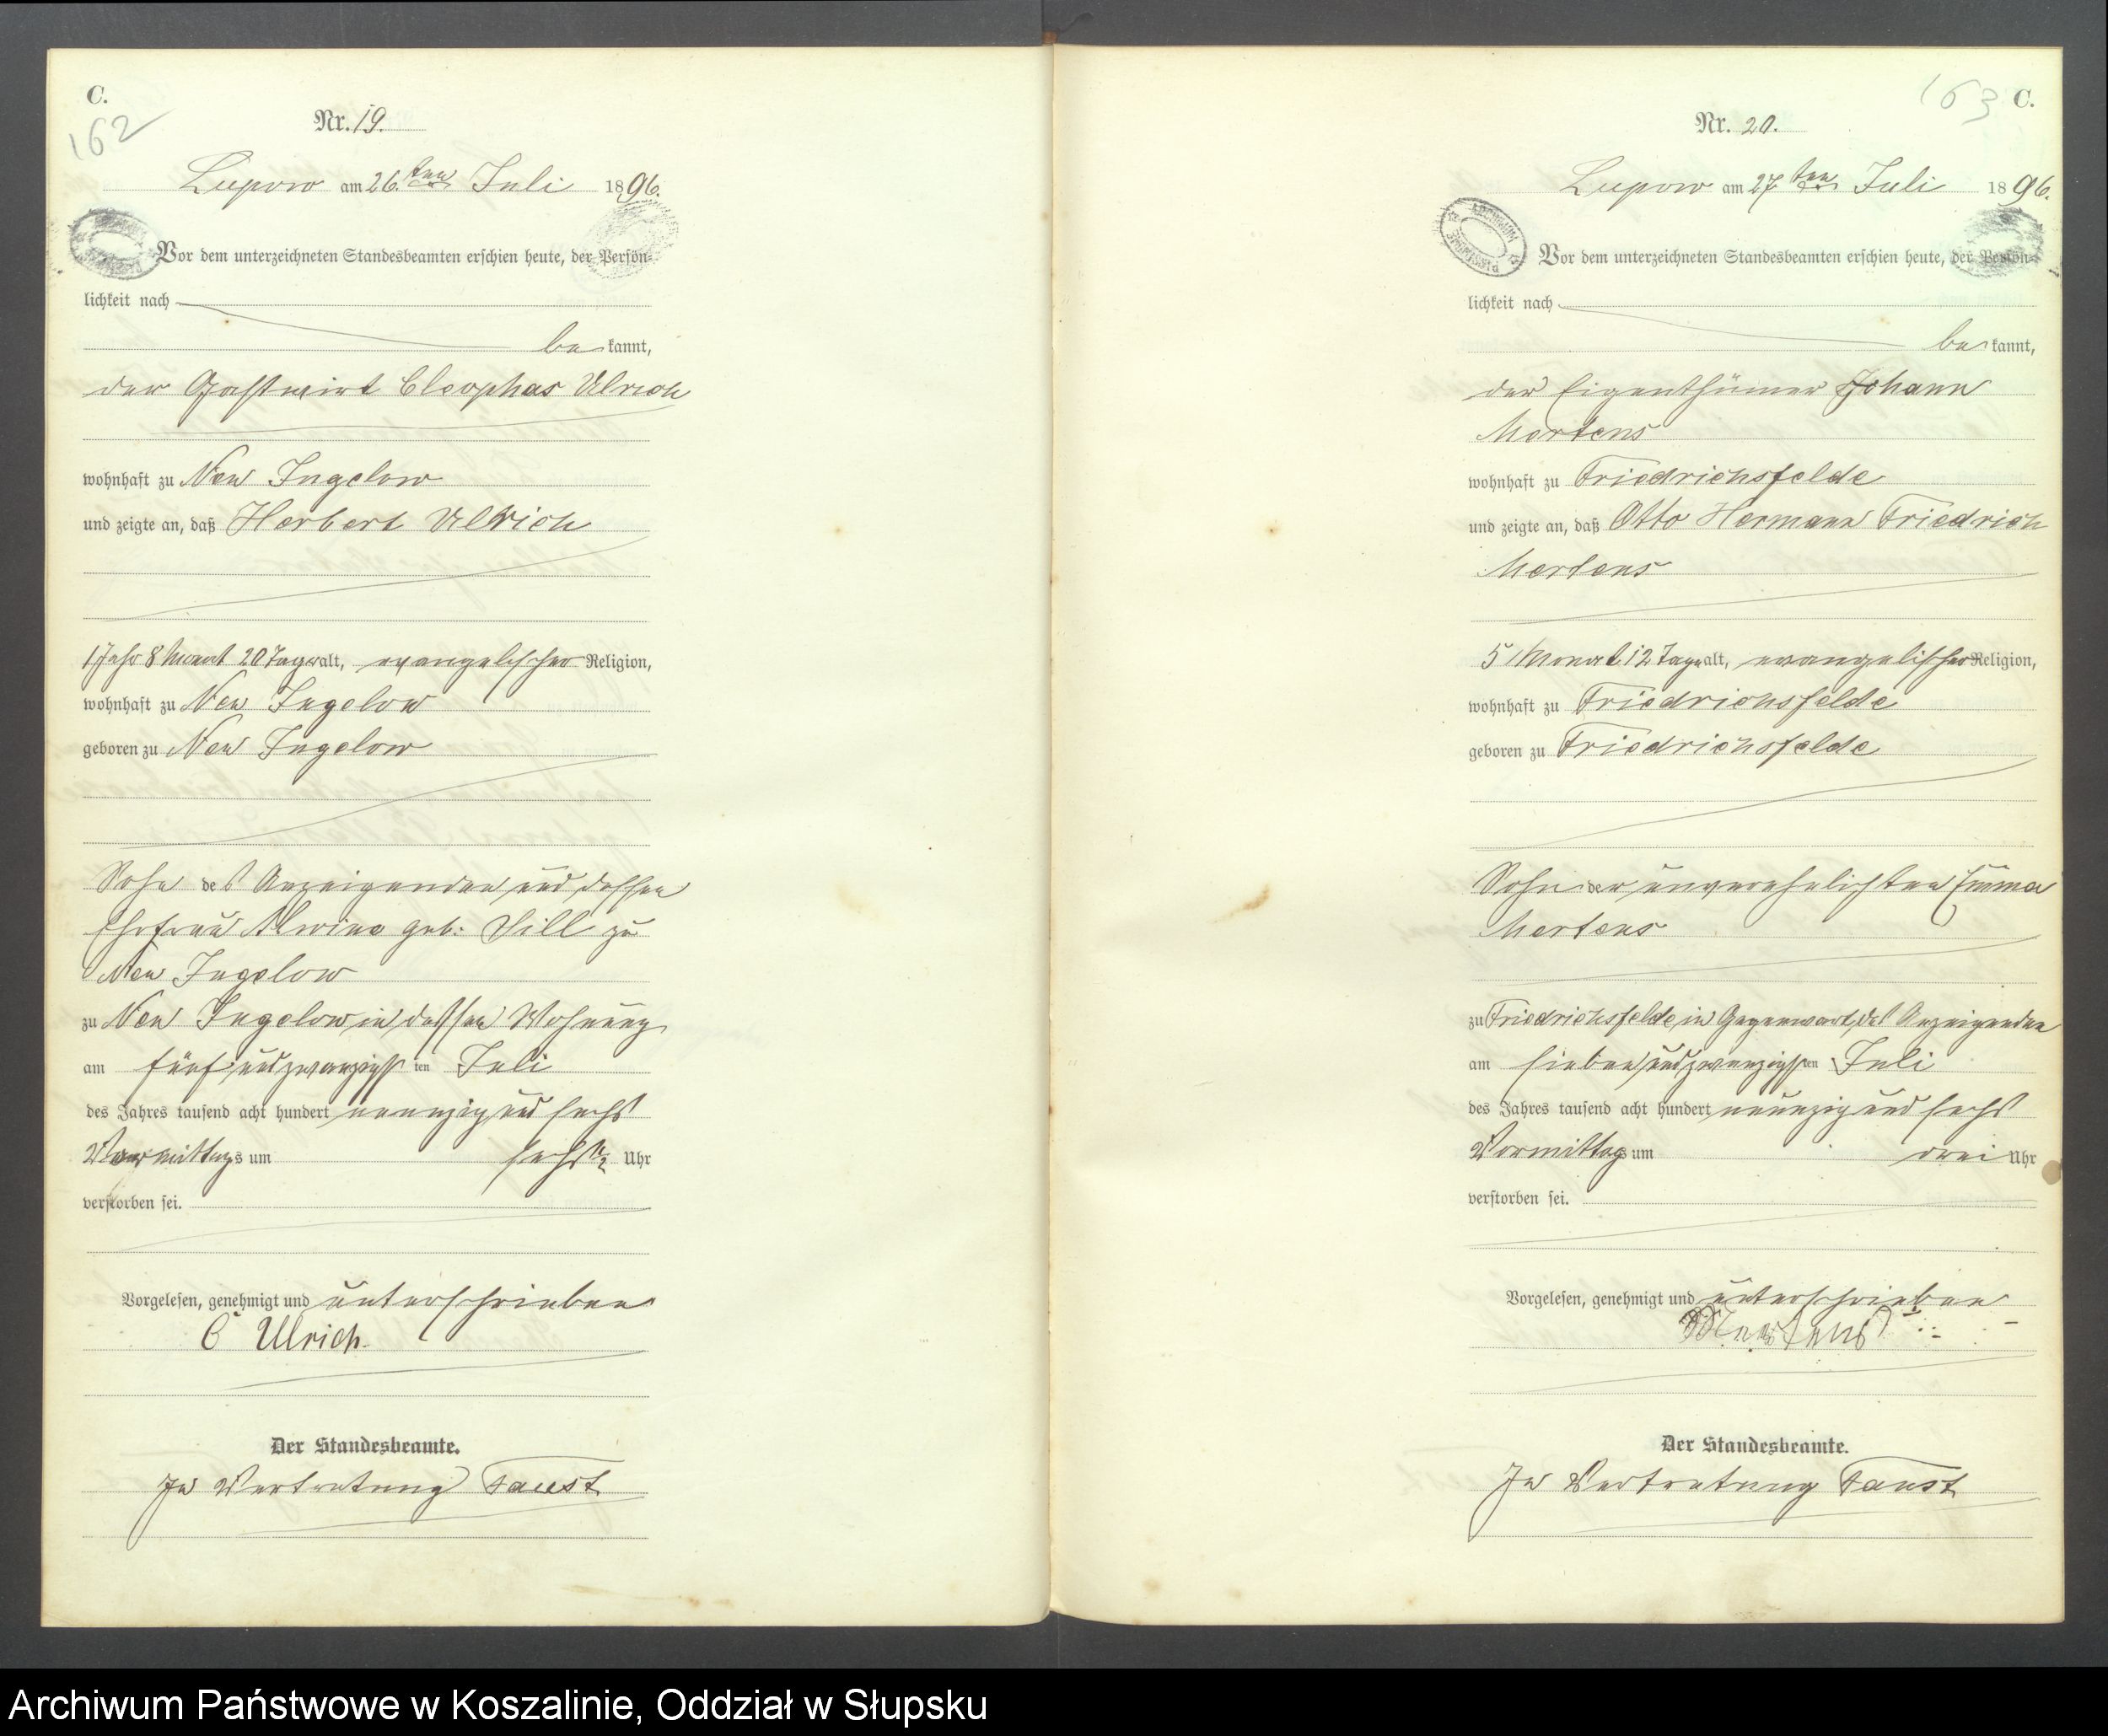 C.
162
Nr. 19.
Lupow am 26.ten Juli 1896.
Vor dem unterzeichneten Standesbeamten erschien heute, der Persön-
lichkeit nach
be kannt,
der Gastwirt Cleophas Ulrich
wohnhaft zu Neu Jugelow
und zeigte an, daß Herbert Ulrich
1 Jahr 8 Monat 20 Tage alt, evangelischer Religion,
wohnhaft zu Neu Jugelow
geboren zu Neu Jugelow
Sohn des Anzeigenden und dessen
Ehefrau Alwine geb: Sill zu
Neu Jugelow
zu Neu Jugelow, in dessen Wohnung
am fünf und zwanzigsten Juli
des Jahres tausend acht hundert neunzig und sechs
mittags um sechs 1/2 Uhr
verstorben sei.
Vorgelesen, genehmigt und unterschrieben
C Ulrich.
Der Standesbeamte.
In Vertretung Faust
163 C.
Nr. 20.
Lupow am 27ten Juli 1896.
Vor dem unterzeichneten Standesbeamten erschien heute, der Persön-
lichkeit nach
be kannt,
der Eigenthümer Johann
Mertens
wohnhaft zu Friedrichsfelde
und zeigte an, daß Otto Hermann Friedrich
Mertens
5 Monat 12 Tage alt, evangelischer Religion,
wohnhaft zu Friedrichsfelde
geboren zu Friedrichsfelde
Sohn der unverehelichten Emma
Mertens
zu Friedrichsfelde, in Gegenwart des Anzeigenden
am sieben und zwanzigsten Juli
des Jahres tausend acht hundert neunzig und sechs
Vormittags um drei Uhr
verstorben sei.
Vorgelesen, genehmigt und unterschrieben
Mertens
Der Standesbeamte.
In Vertretung Faust
Archiwum Państwowe w Koszalinie, Oddział w Słupsku